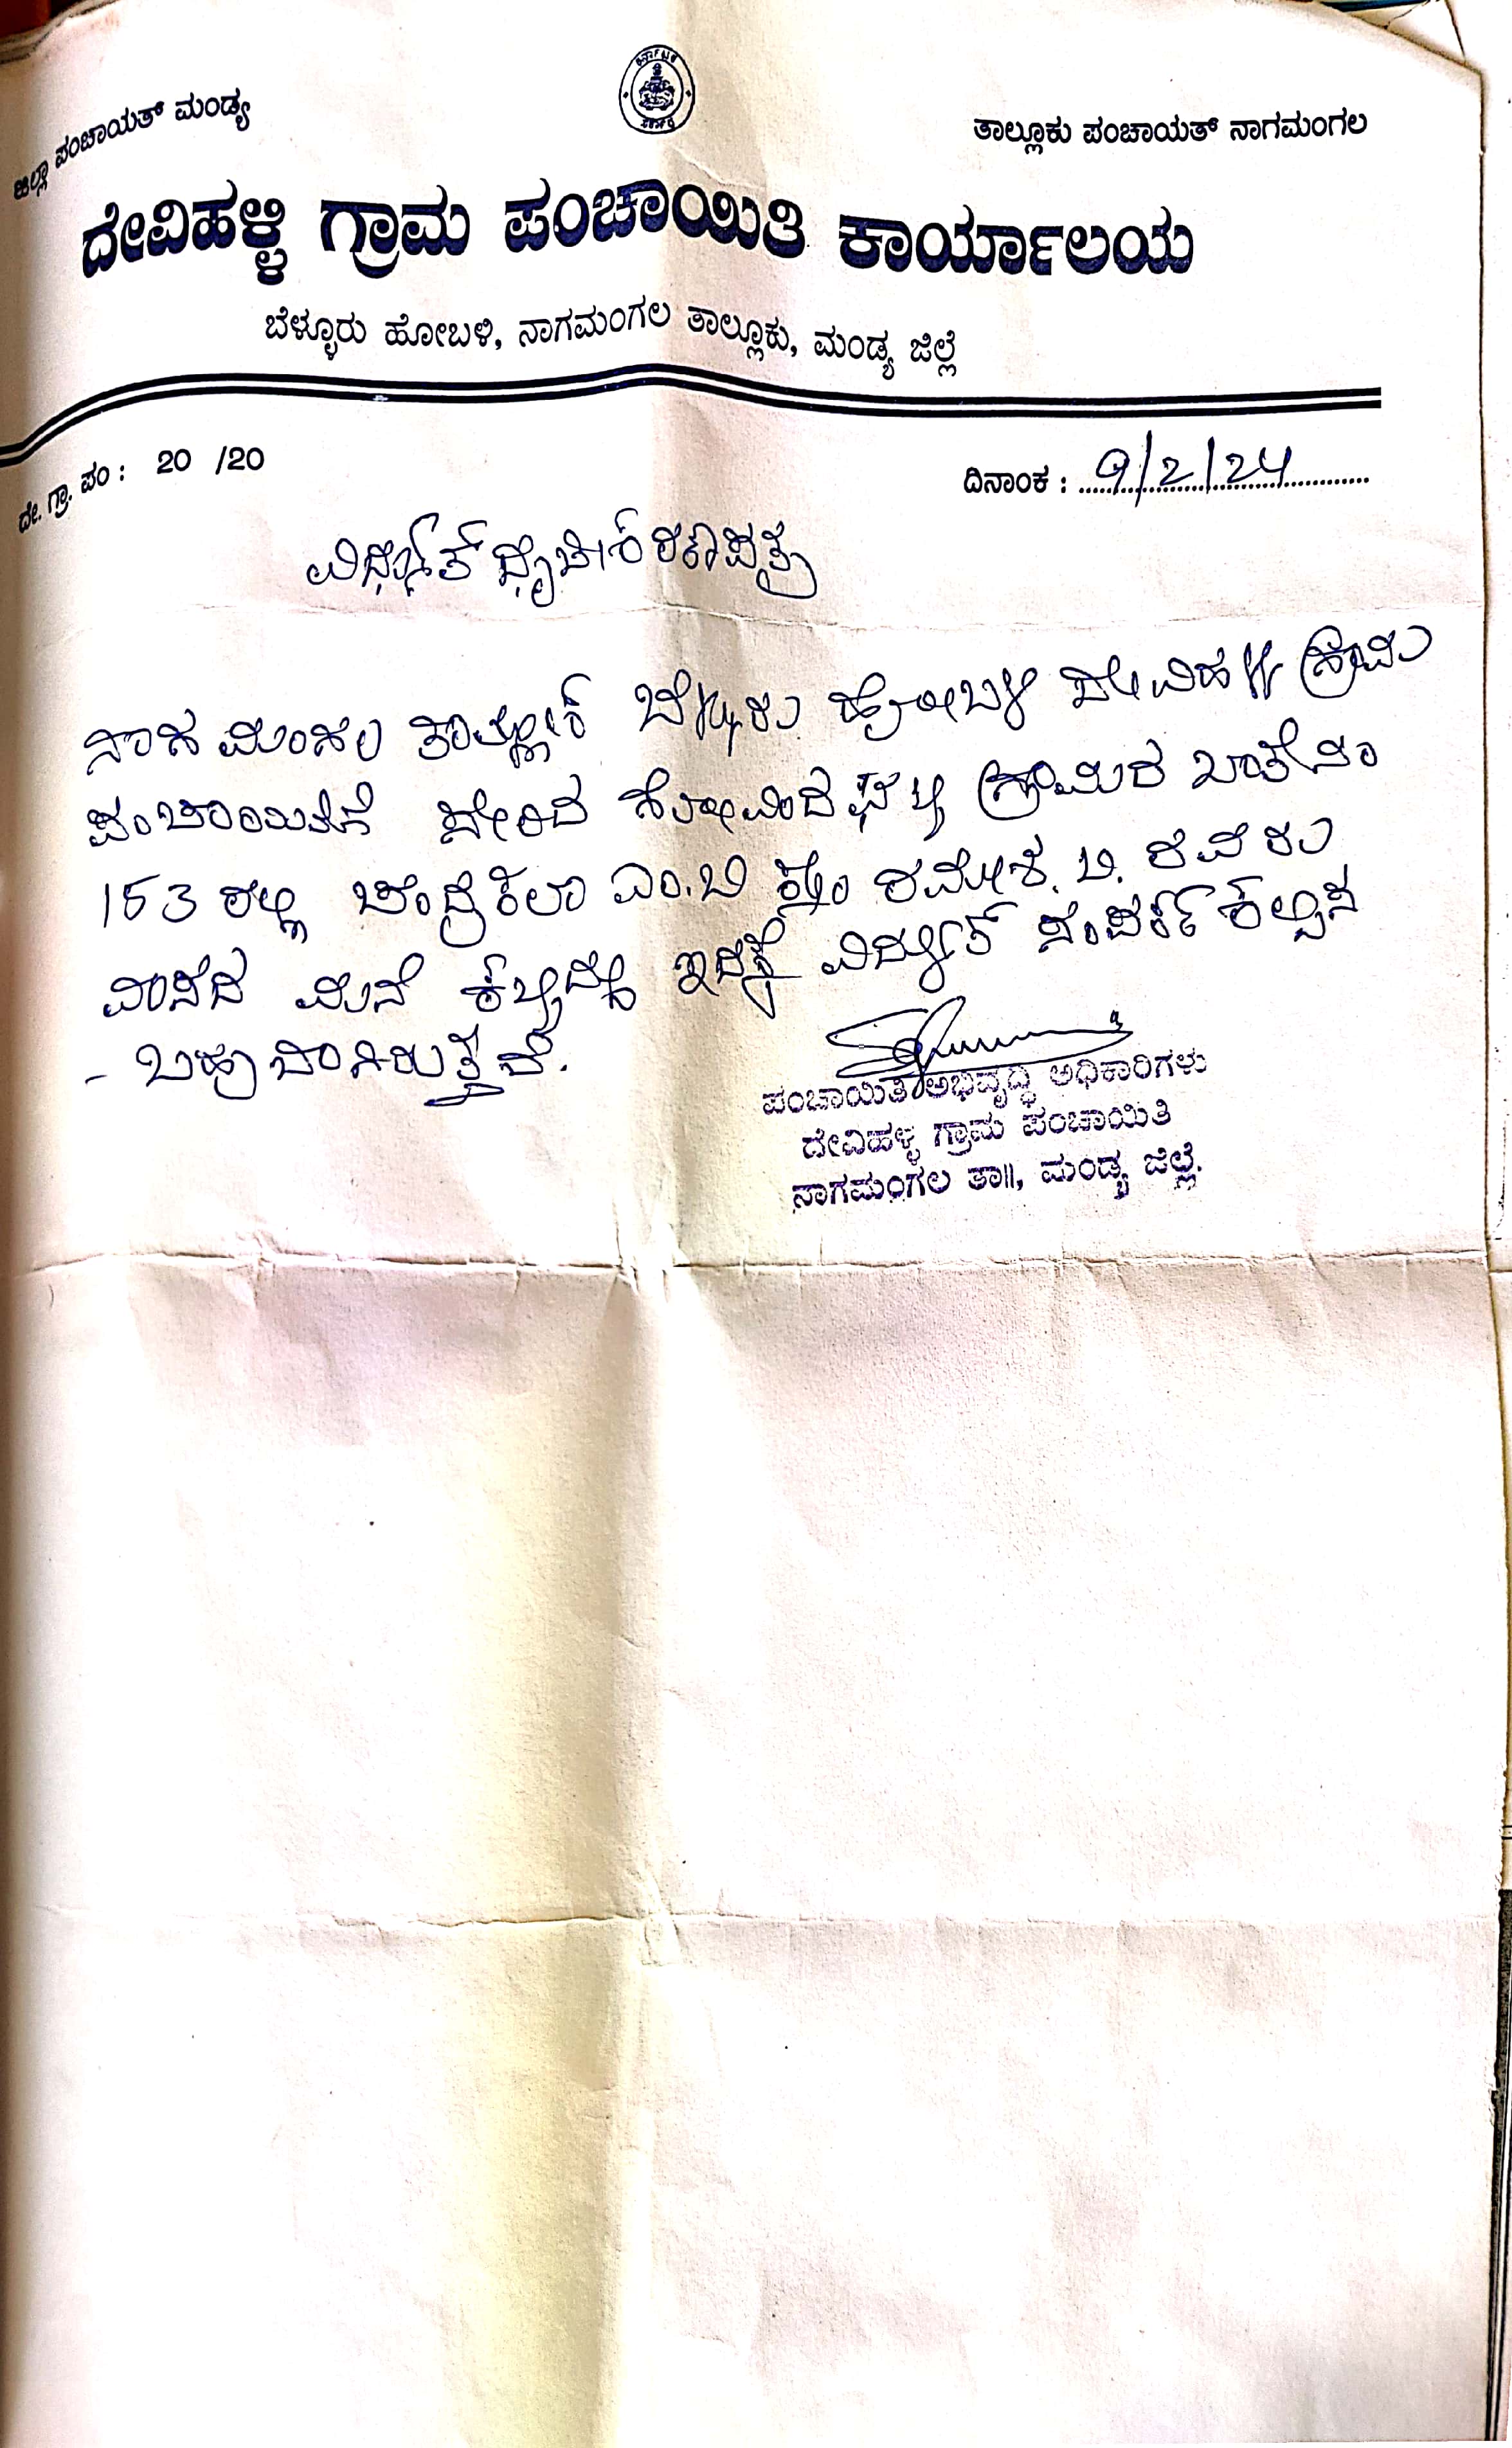 ಜಿಲ್ಲಾ ಪಂಚಾಯತ್ ಮಂಡ್ಯ
ತಾಲ್ಲೂಕು ಪಂಚಾಯತ್ ನಾಗಮಂಗಲ
ದೇವಿಹಳ್ಳಿ ಗ್ರಾಮ ಪಂಚಾಯಿತಿ ಕಾರ್ಯಾಲಯ
ಬೆಳ್ಳೂರು ಹೋಬಳಿ, ನಾಗಮಂಗಲ ತಾಲ್ಲೂಕು, ಮಂಡ್ಯ ಜಿಲ್ಲೆ
ದೇ. ಗ್ರಾ. ಪಂ : 20 /20
ದಿನಾಂಕ : 9/2/24
ನಾಗಮಂಗಲ ತಾಲ್ಲೂಕ್ ಬೆಳ್ಳೂರು ಹೋಬಳಿ ದೇವಿಹಳ್ಳಿ ಗ್ರಾಮ
ಪಂಚಾಯಿತಿಗೆ ಸೇರಿದ ಗ್ರಾಮದ ಖಾತೆ ನಂ
153 ರಲ್ಲಿ ಚಂದ್ರಕಲಾ ಎಂ.ಬಿ ಕೋಂ ರಮೇಶ. ಬಿ. ರವರು
ವಾಸದ ಮನೆ ಕಟ್ಟಿದ್ದು ಇದಕ್ಕೆ ವಿದ್ಯುತ್ ಸಂಪರ್ಕ ಕಲ್ಪಿಸ
- ಬಹುದಾಗಿರುತ್ತದೆ.
ಪಂಚಾಯಿತಿ ಅಭಿವೃದ್ಧಿ ಅಧಿಕಾರಿಗಳು
ದೇವಿಹಳ್ಳಿ ಗ್ರಾಮ ಪಂಚಾಯಿತಿ
ನಾಗಮಂಗಲ ತಾ||, ಮಂಡ್ಯ ಜಿಲ್ಲೆ.